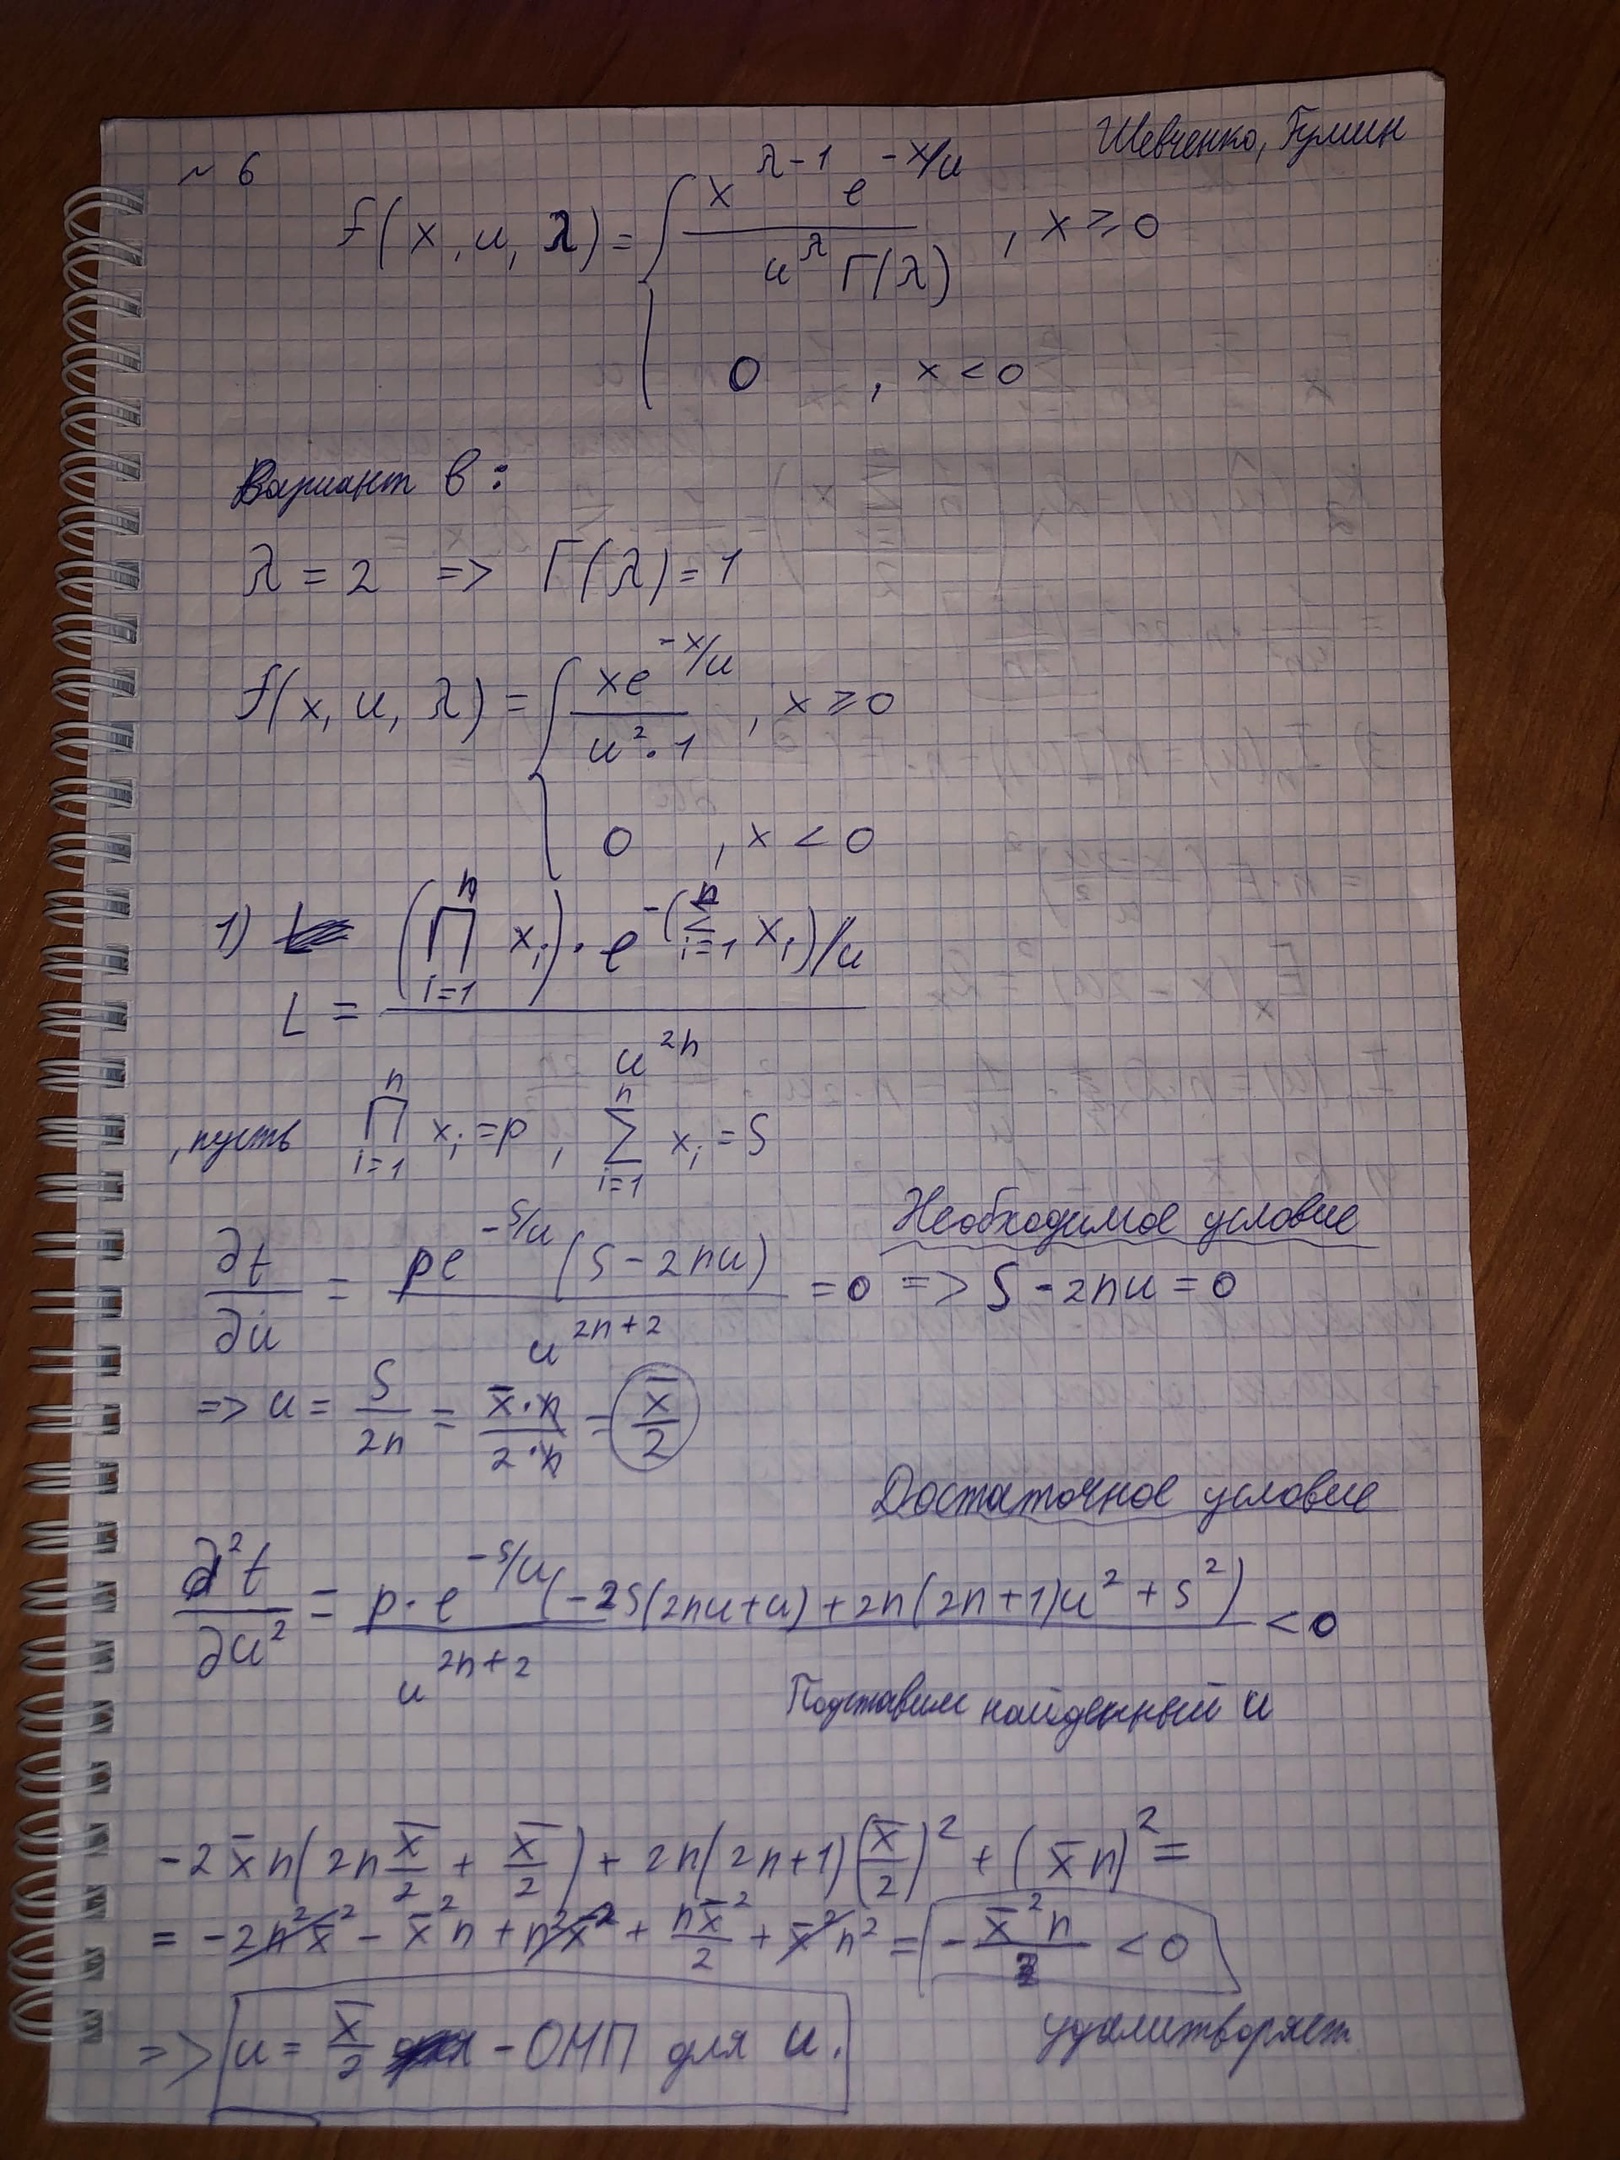 Шевченко, Гумин
~ 6
f(x, u, λ) = { x^{λ-1} e^{-x/u} / u^λ Γ(λ) , x ≥ 0
0 , x < 0
Вариант в:
λ = 2 => Γ(λ) = 1
f(x, u, λ) = { x e^{-x/u} / u^2 · 1 , x ≥ 0
0 , x < 0
1) L = (∏_{i=1}^{n} x_i) · e^{-(∑_{i=1}^{n} x_i)/u} / u^{2n}
, пусть ∏_{i=1}^{n} x_i = p , ∑_{i=1}^{n} x_i = S
Необходимое условие
∂t/∂u = p e^{-S/u} (S - 2nu) / u^{2n+2} = 0 => S - 2nu = 0
=> u = S/2n = x̄·n / 2·n = x̄/2
Достаточное условие
∂²t/∂u² = p · e^{-S/u} (-2S(2nu+u) + 2n(2n+1)u² + S²) / u^{2n+2} < 0
Подставим найденный u
-2x̄n(2n x̄/2 + x̄/2) + 2n(2n+1)(x̄/2)² + (x̄n)² =
= -2n²x̄² - x̄²n + n²x̄² + nx̄²/2 + x̄²n² = - x̄²n/2 < 0
удалитворяет
=> u = x̄/2 - ОМП для u.